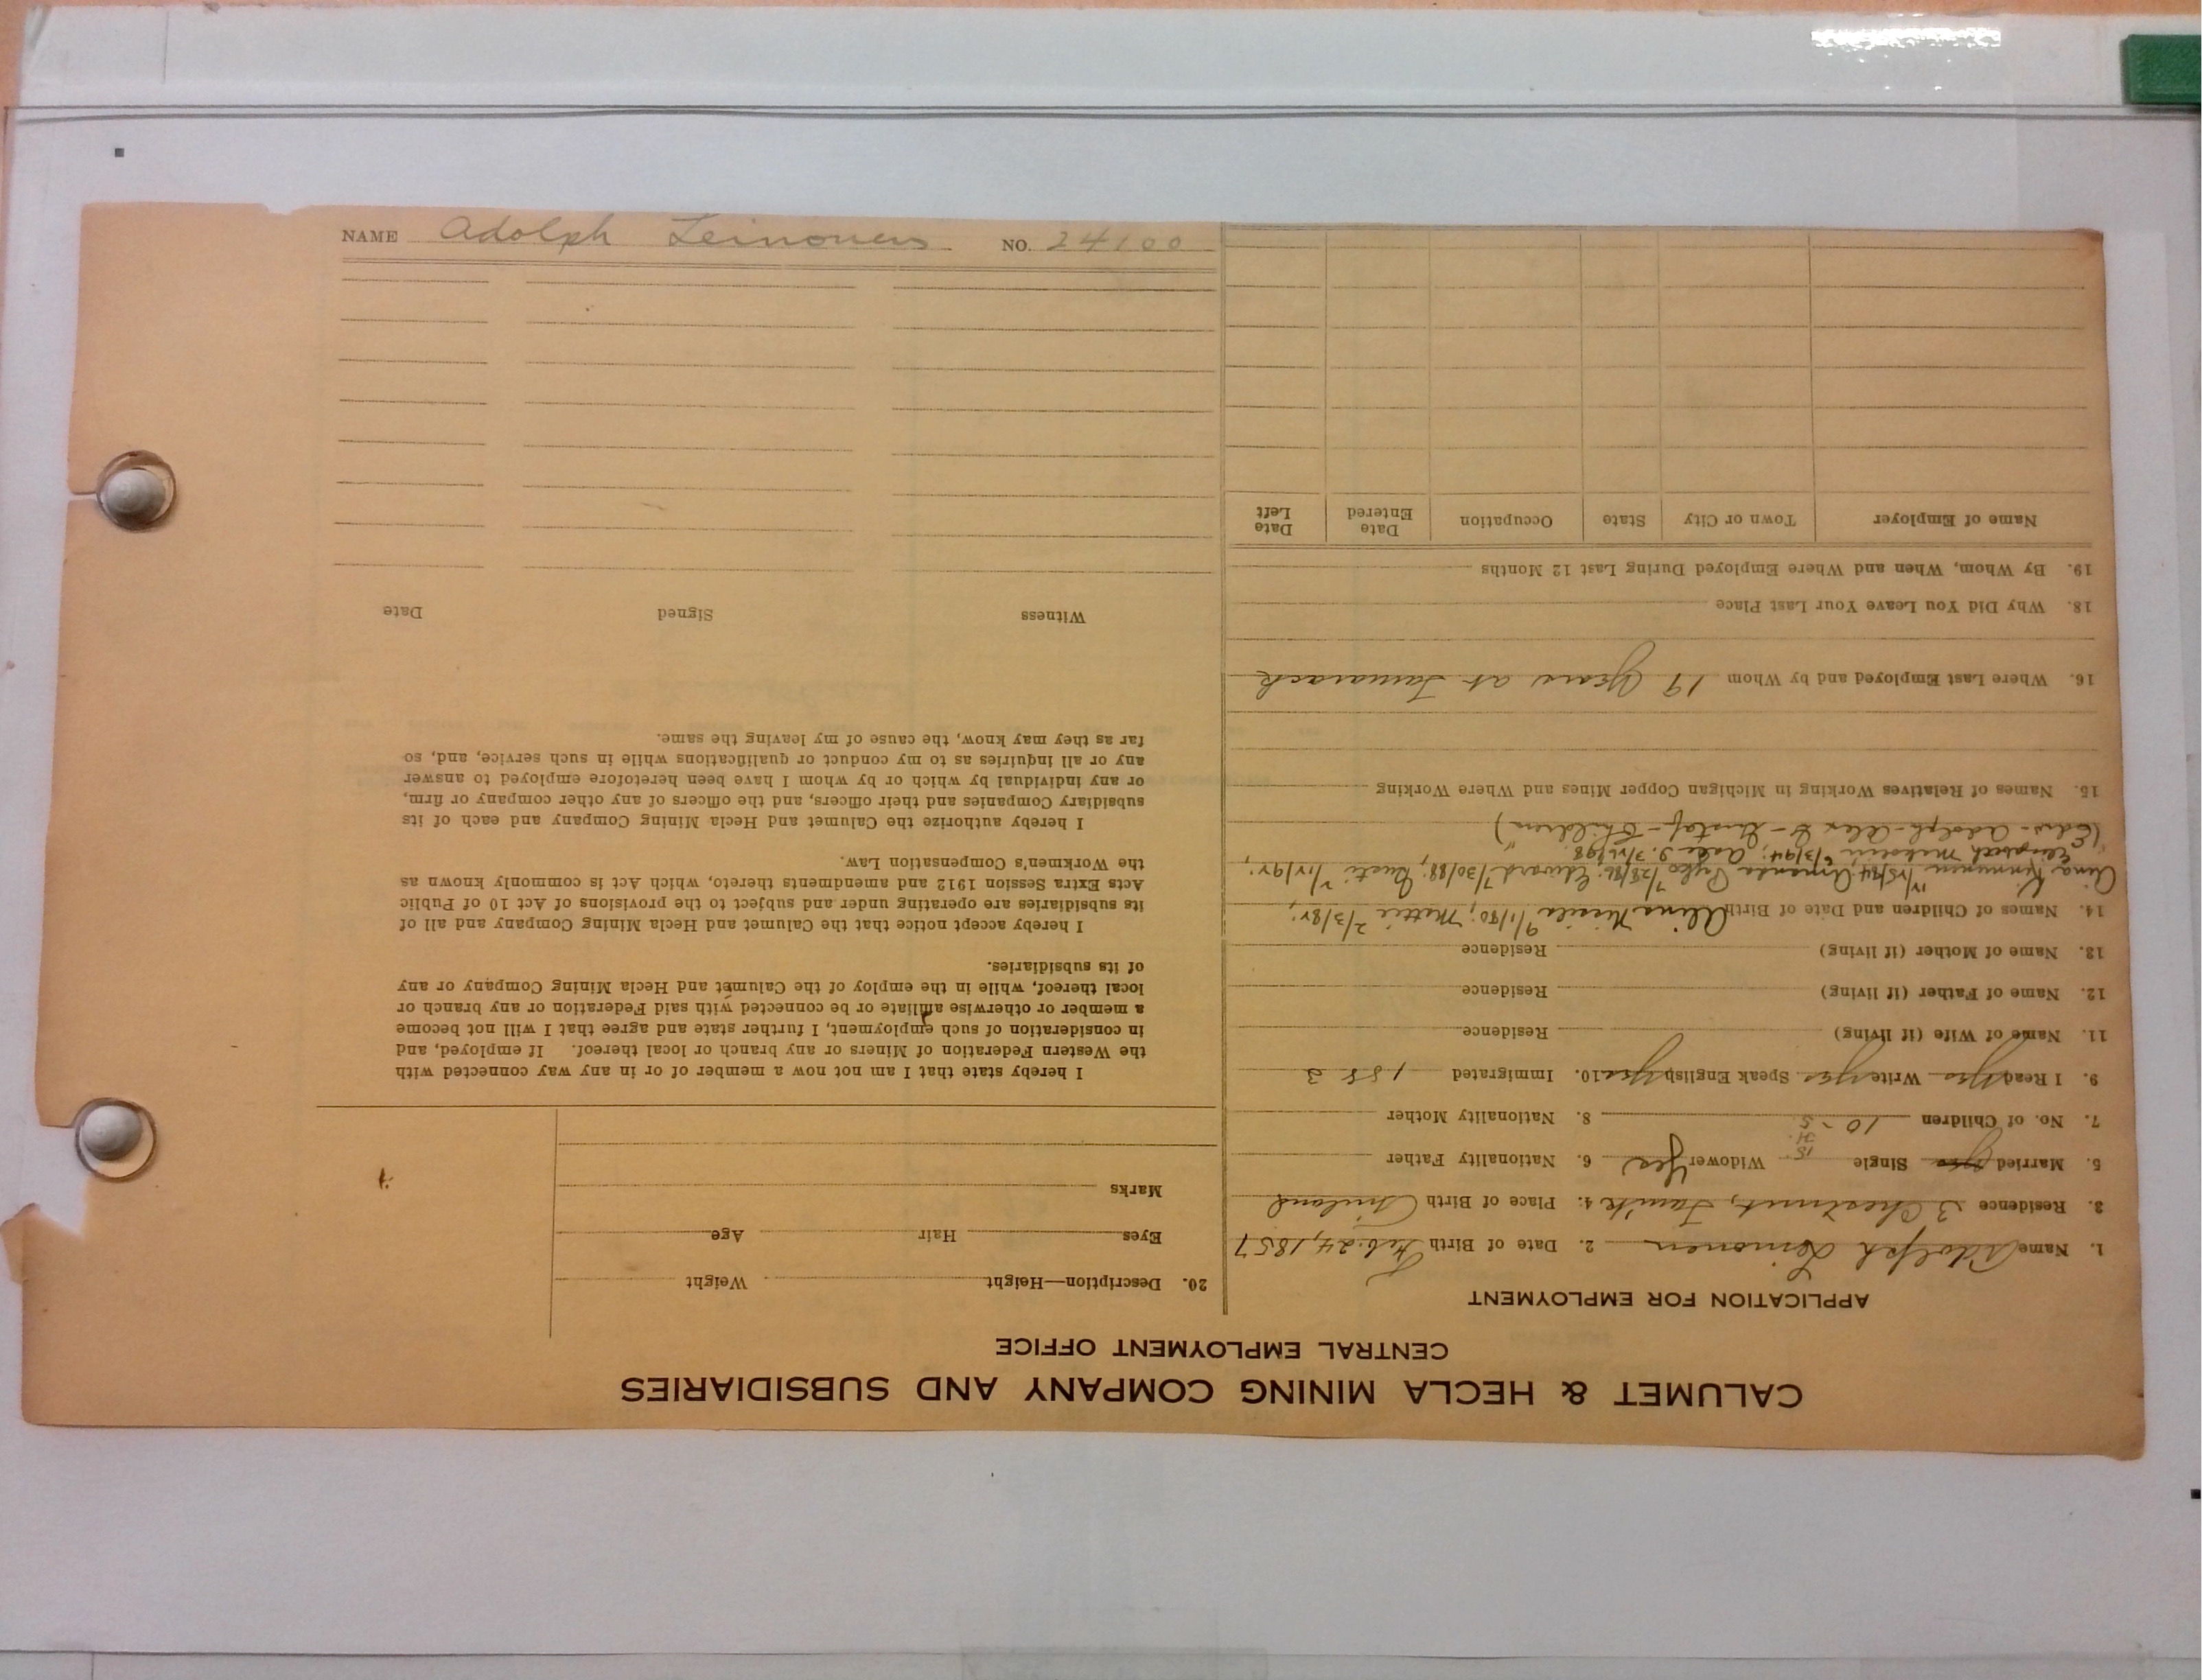 NAME Adolph Leinonen NO. 24100
CALUMET & HECLA MINING COMPANY AND SUBSIDIARIES
CENTRAL EMPLOYMENT OFFICE
APPLICATION FOR EMPLOYMENT
1. Name Adolph Leinonen 2. Date of Birth Feb. 24, 1857
3. Residence 3 Chestnut, Tam'k 4. Place of Birth Finland
5. Married Yes Single Widower Yes 6. Nationality Father
7. No. of Children 10 - 5 8. Nationality Mother
9. I Read Yes Write Yes Speak English Yes 10. Immigrated 1883
11. Name of Wife (if living) Residence
12. Name of Father (if living) Residence
13. Name of Mother (if living) Residence
14. Names of Children and Date of Birth Alina 9/1/80; Mattie 2/3/82;
Anna Kinnunen Amanda 7/28/86; Edward 7/30/88; Gusti
Elizabeth 6/3/94;
(Edw - Adolph - Alex & - Gustaf - Children)
15. Names of Relatives Working in Michigan Copper Mines and Where Working
16. Where Last Employed and by Whom 19 Years at Tamarack
18. Why Did You Leave Your Last Place
19. By Whom, When and Where Employed During Last 12 Months
Name of Employer Town or City State Occupation Date Entered Date Left
20. Description—Height Weight
Eyes Hair Age
Marks
I hereby state that I am not now a member of or in any way connected with
the Western Federation of Miners or any branch or local thereof. If employed, and
in consideration of such employment, I further state and agree that I will not become
a member or otherwise affiliate or be connected with said Federation or any branch or
local thereof, while in the employ of the Calumet and Hecla Mining Company or any
of its subsidiaries.
I hereby accept notice that the Calumet and Hecla Mining Company and all of
its subsidiaries are operating under and subject to the provisions of Act 10 of Public
Acts Extra Session 1912 and amendments thereto, which Act is commonly known as
the Workmen's Compensation Law.
I hereby authorize the Calumet and Hecla Mining Company and each of its
subsidiary Companies and their officers, and the officers of any other company or firm,
or any individual by which or by whom I have been heretofore employed to answer
any or all inquiries as to my conduct or qualifications while in such service, and, so
far as they may know, the cause of my leaving the same.
Witness Signed Date